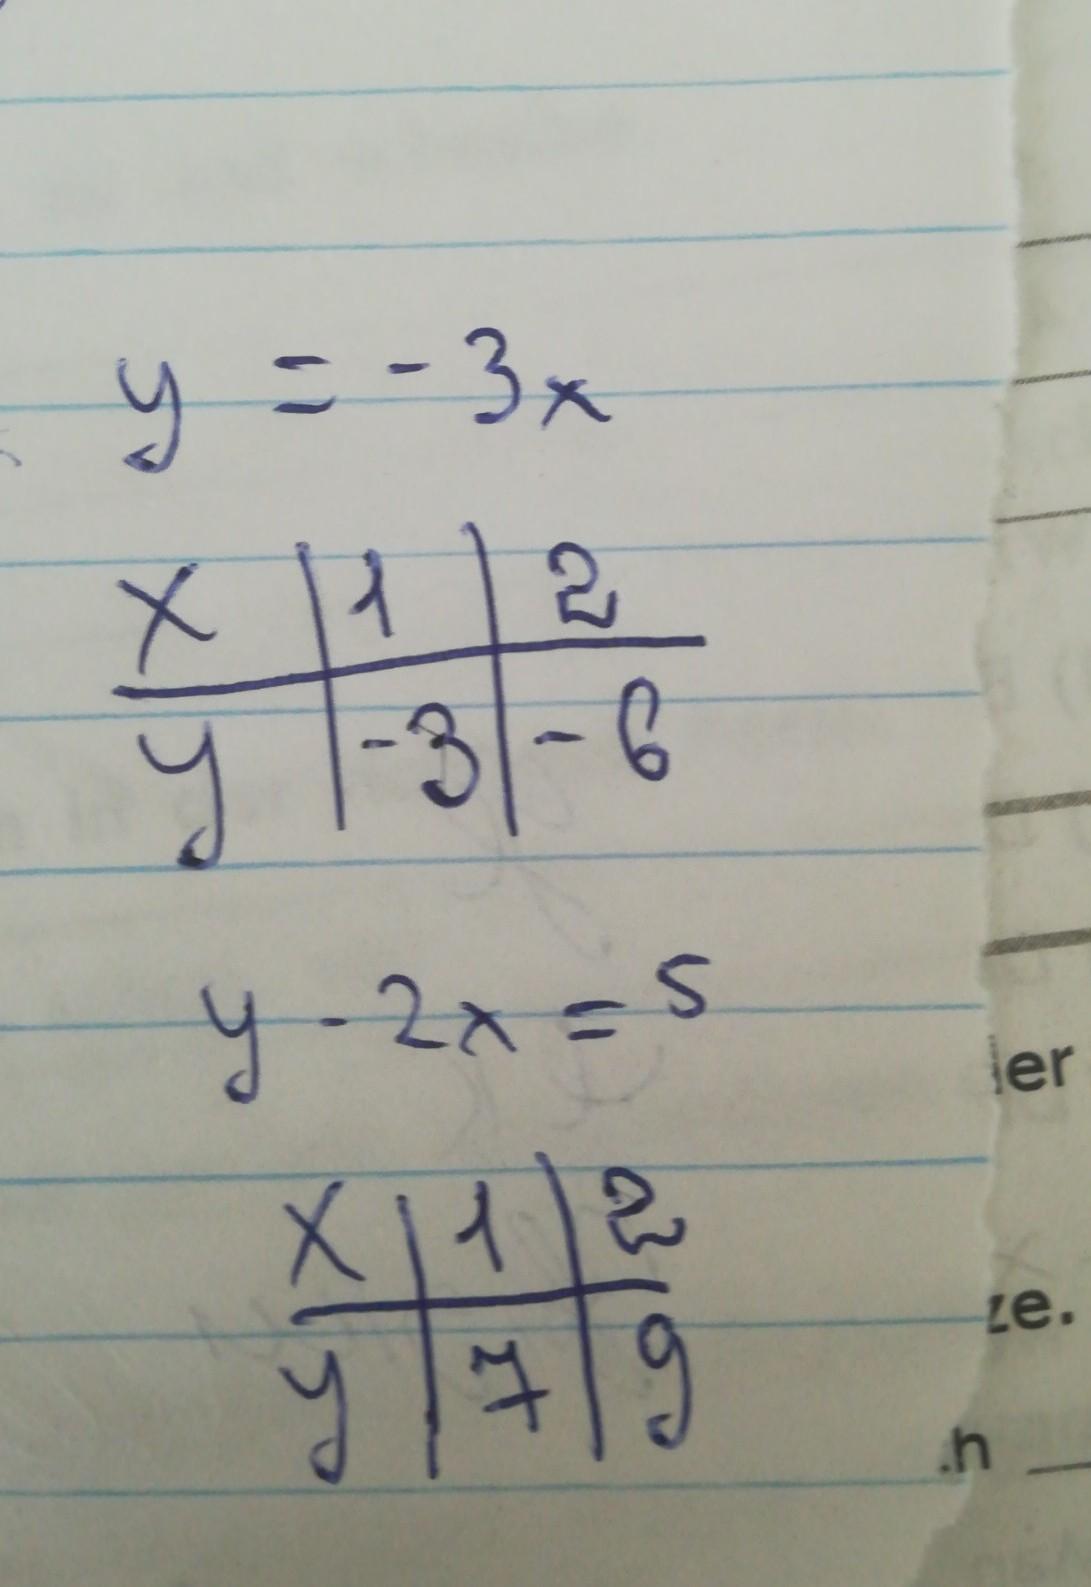 y = -3x
x | 1 | 2
y | -3 | -6
y - 2x = 5
x | 1 | 2
y | 7 | 9
ler
ze.
.n